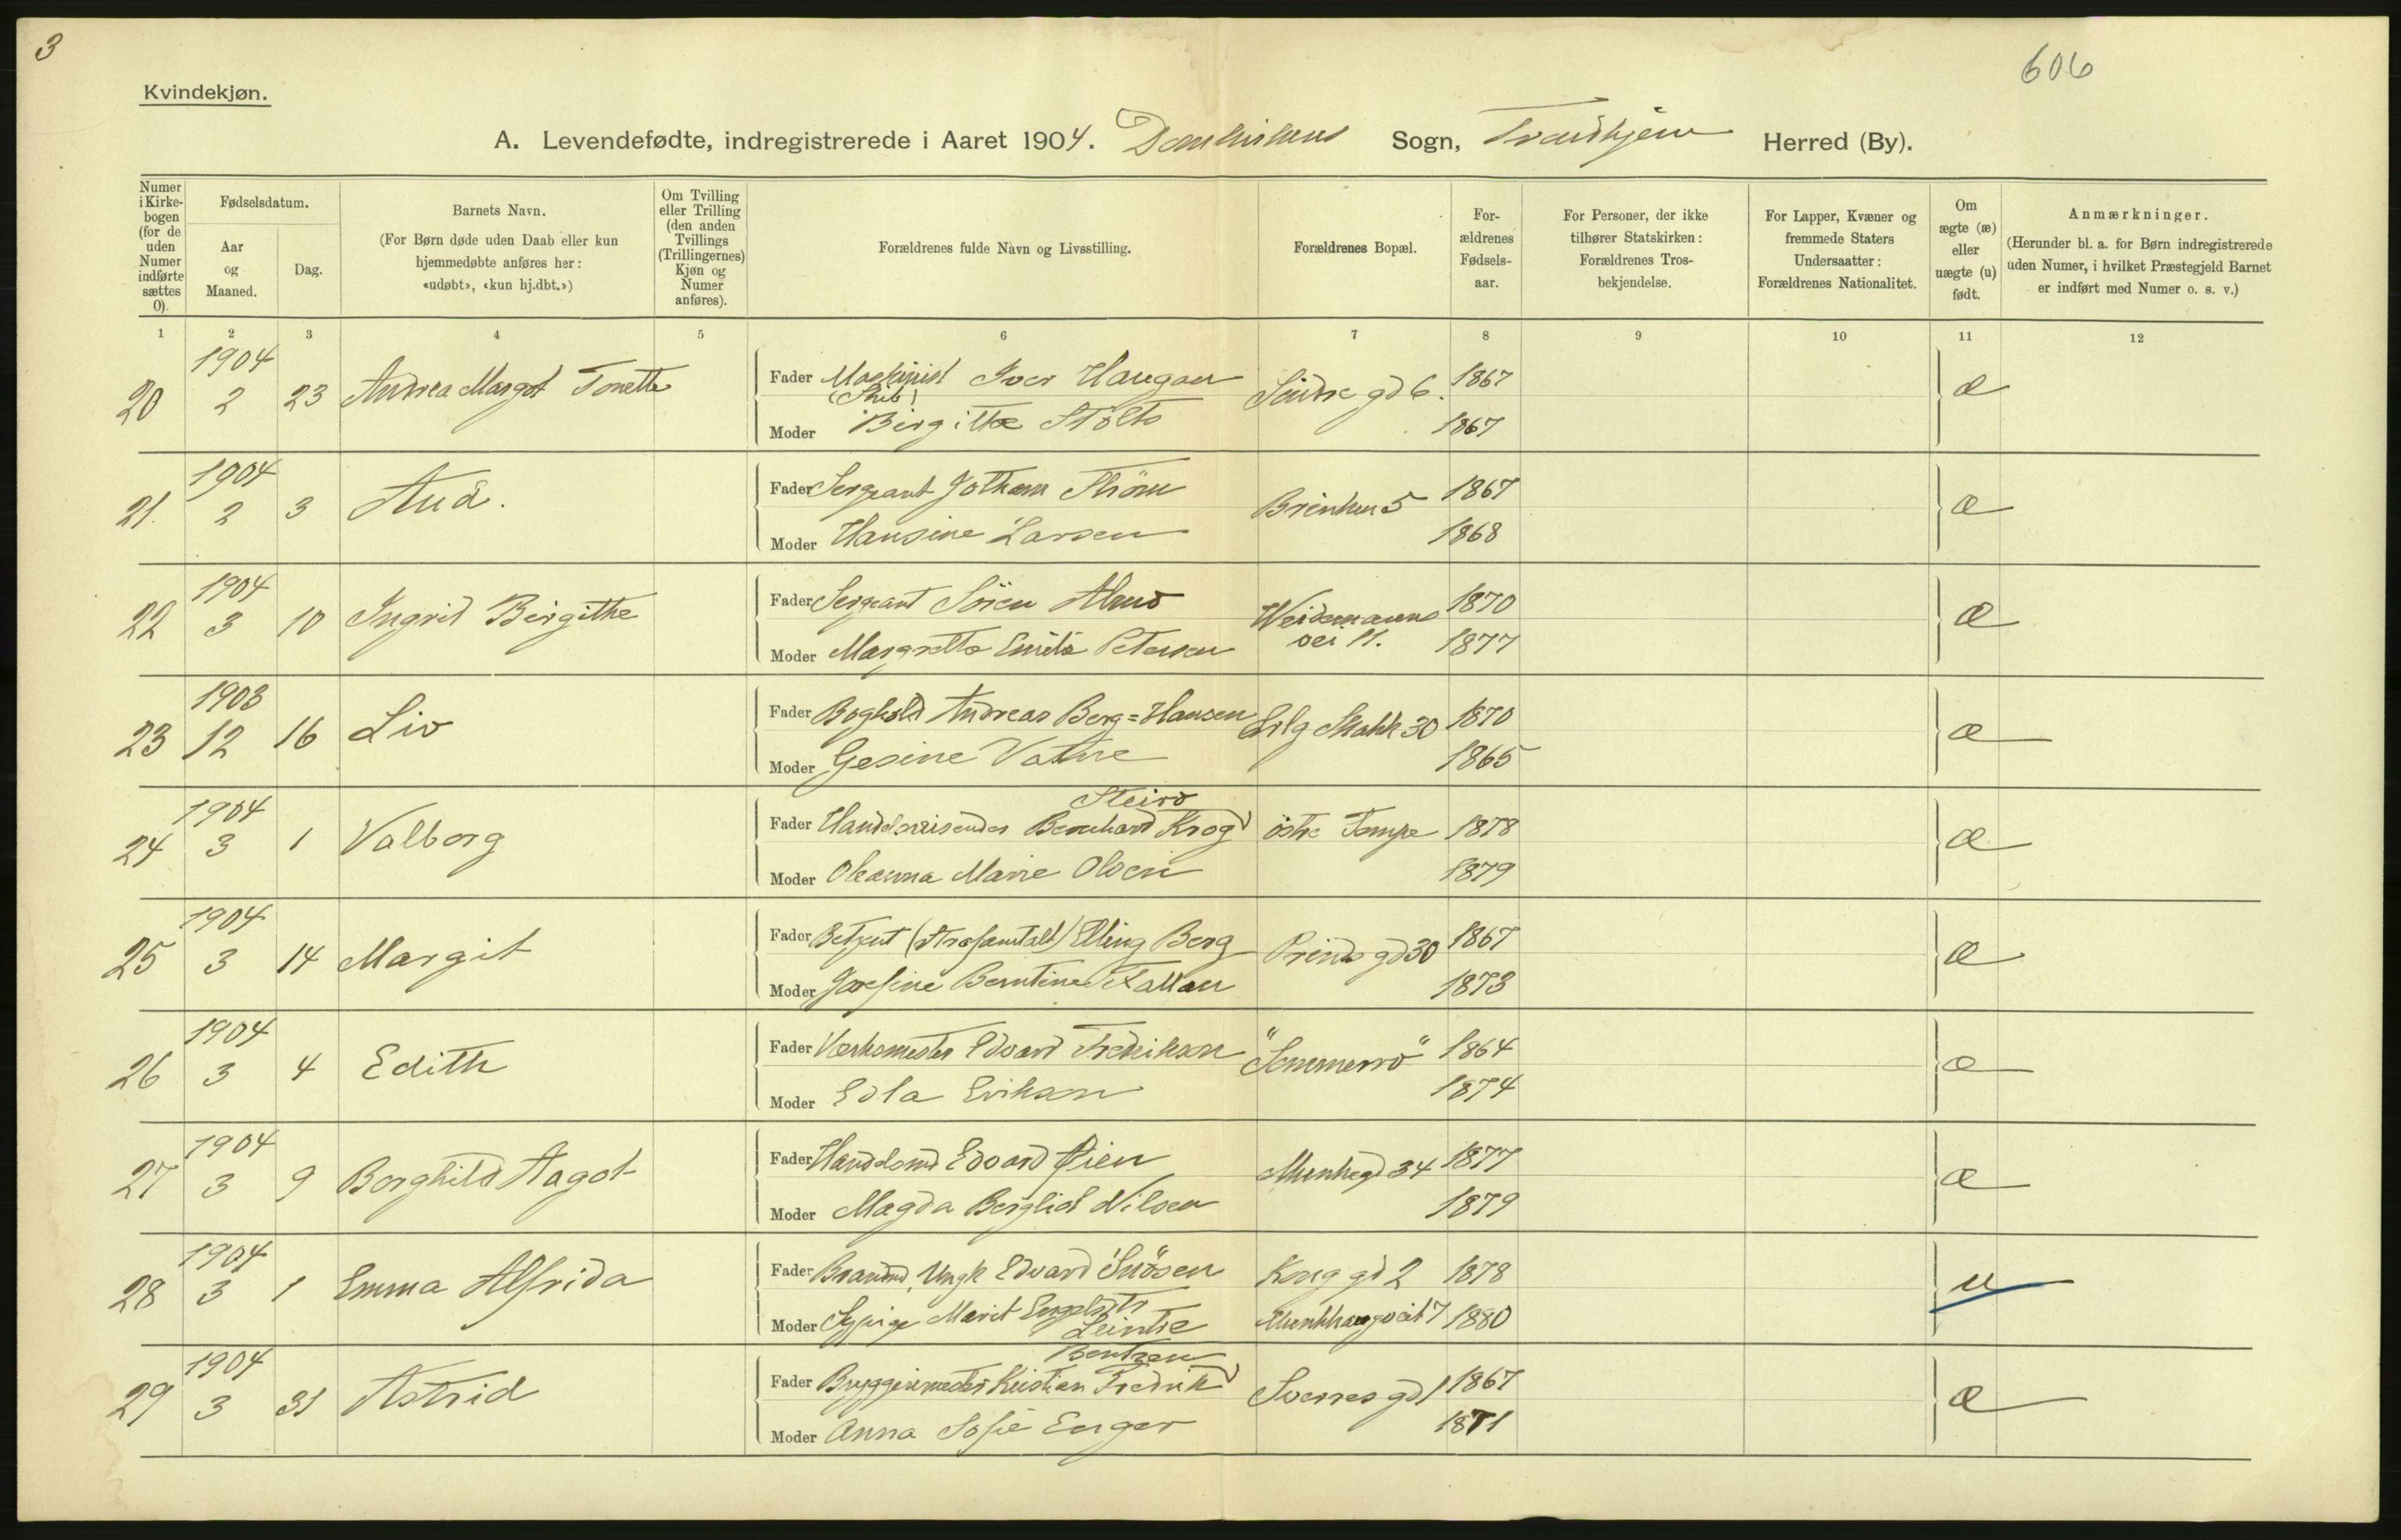 3
606
Kvindekjøn.
A. Levendefødte, indregistrerede i Aaret 1904. Domkirkens Sogn, Trondhjem Herred (By).
Numer i Kirkebogen (for de uden Numer indførte sættes 0).
Fødselsdatum.
Aar og Maaned.
Dag.
Barnets Navn.
(For Børn døde uden Daab eller kun hjemmedøbte anføres her: «udøbt», «kun hj.dbt.»)
Om Tvilling eller Trilling (den anden Tvillings (Trillingernes) Kjøn og Numer anføres).
Forældrenes fulde Navn og Livsstilling.
Forældrenes Bopæl.
Forældrenes Fødselsaar.
For Personer, der ikke tilhører Statskirken: Forældrenes Trosbekjendelse.
For Lapper, Kvæner og fremmede Staters Undersaatter: Forældrenes Nationalitet.
Om ægte (æ) eller uægte (u) født.
Anmærkninger.
(Herunder bl. a. for Børn indregistrerede uden Numer, i hvilket Præstegjeld Barnet er indført med Numer o. s. v.)
1 2 3 4 5 6 7 8 9 10 11 12
1904
20 2 23 Andrea Margot Tonette Fader Maskinist (Skib) Iver Haugan Søndre gd 6. 1867 æ
Moder Birgitte Stölto 1867
1904
21. 2 3 Aud. Fader Sergeant Jotham Ström Brinken 5 1867 æ
Moder Hansine Larsen 1868
1904
22 3 10 Ingrid Birgithe Fader Sergeant Sören Weidemanns 1870 æ
Moder Margrethe Emilie Petersen vei 11. 1877
1903
23 12 16 Liv Fader Boghold Andreas Berg=Hansen Erlg Skakk 30 1870 æ
Moder Gesine Vatne 1865
Steiro
1904
24 3 1 Valborg Fader Handelsreisender Bernhard Krog östre Tempe 1878 æ
Moder Oleanna Marie Olsen 1879
1904
25 3 14 Margit Fader Betjent (Strafanstalt) Elling Berg Prinds gd 30 1867 æ
Moder Josefine Berntine Fallan 1873
1904
26 3 4 Edith Fader Værksmester Edvard Fredrikson "Sommerro" 1864 æ
Moder Edla Erikson 1874
1904
27 3 9 Borghild Aagot Fader Handelsmd Edvard Øien Munkegd 34 1877 æ
Moder Magda Bergliot Nilsen 1879
1904
28 3 1 Emma Alfrida Fader Brandmd, Ungk Edvard Snösen Kong gd 2 1878 u
Moder Sypige Marit Engelsdtr Leintre Munkhaugveit 7 1880
Bentzen
1904
29 3 31 Astrid Fader Bryggerimester Kristian Fredrik Sverres gd 1 1867 æ
Moder Anna Sofie Enger 1871